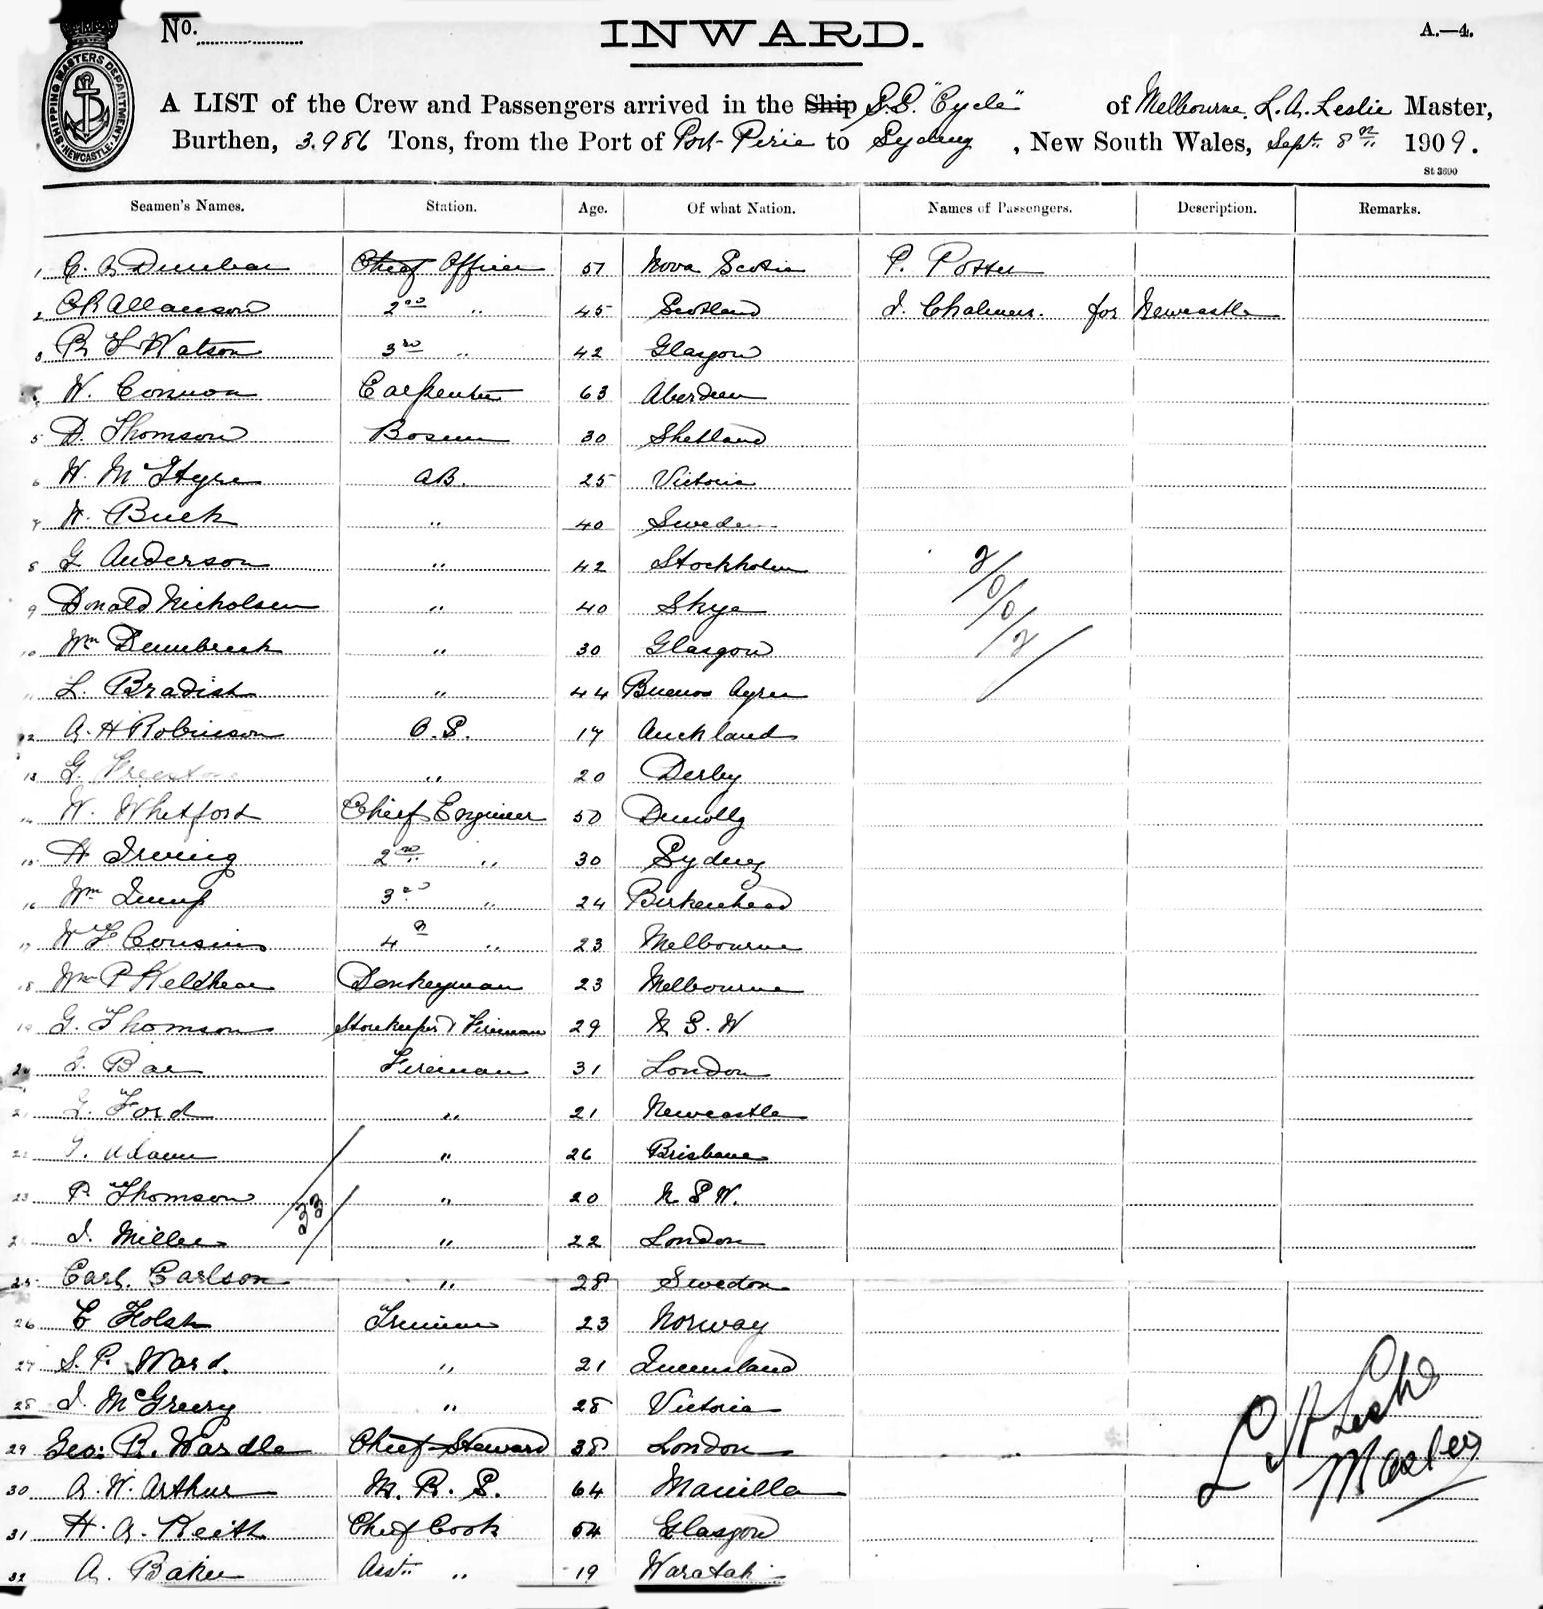 No.
INWARD.
A.—4.
SHIPPING MASTERS DEPARTMENT NEWCASTLE
A LIST of the Crew and Passengers arrived in the Ship S.S. "Cycle" of Melbourne, L. A. Leslie Master,
Burthen, 3.986 Tons, from the Port of Port Pirie to Sydney, New South Wales, Sept. 8th 1909.
St 3690
Seamen's Names. Station. Age. Of what Nation. Names of Passengers. Description. Remarks.
1 C. A Dunbar Chief Officer 51 Nova Scotia P. Potter
2 Allanson 2nd " 45 Scotland J. Chalmers. for Newcastle
3 R L Watson 3rd " 42 Glasgow
W. Connon Carpenter 63 Aberdeen
5 D. Thomson Bosun 30 Shetland
6 W. McIntyre AB. 25 Victoria
7 W. Buck " 40 Sweden
8 G Anderson " 42 Stockholm
9 Donald Nicholson " 40 Skye
10 Wm Dumbreck " 30 Glasgow
11 L. Bradish " 44 Buenos Ayres
12 A. H Robinson O.S. 17 Auckland
13 G. " 20 Derby
14 W. Whitford Chief Engineer 50 Dunolly
15 H Irving 2nd " 30 Sydney
16 Wm Jump 3rd " 24 Birkenhead
17 W F Cousins 4th " 23 Melbourne
18 Wm P Donkeyman 23 Melbourne
19 G. Thomson Storekeeper & Fireman 29 N S W
20 Fireman 31 London
21 G. Ford " 21 Newcastle
22 Adams " 26 Brisbane
23 P. Thomson " 20 N S W.
J. Miller " 22 London
25 Carl. Carlson " 28 Swedon
26 C Holst Trimmer 23 Norway
27 S. P. Ward. " 21 Queensland
28 J. McGreery " 28 Victoria
29 Geo: R. Wardle Chief Steward 38 London
30 A. W. Arthur M. R. S. 64 Manilla
31 H. A. Keith Chief Cook 54 Glasgow
32 A. Baker Asst. " 19 Waratah
2/0/0/2/
L A Leslie
Master